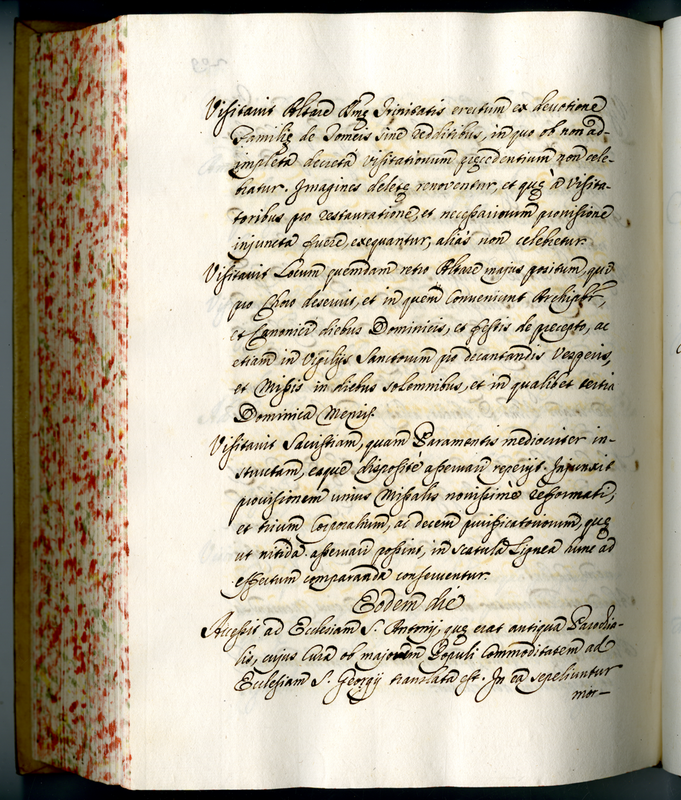 Visitavit Altare SSmę Trinitatis erectum ex devotione
Familię de Tomeis sine redditibus, in quo ob non ad-
impleta decreta Visitationum pręcedentium non cele-
bratur. Imagines deletę renoventur, et quę à Visita-
toribus pro restauratione, et necessariorum provisione
injuncta fuere, exequantur, aliàs non celebretur.
Visitavit Locum quemdam retro Altare majus positum, qui
pro Choro deservit, et in quem Conveniunt Archipbr,
et Canonici diebus Dominicis, et festis de pręcepto, ac
etiam in Vigilijs Sanctorum pro decantandis Vesperis,
et Missis in diebus solemnibus, et in qualibet tertia
Dominica Mensis.
Visitavit Sacristiam, quam Paramentis mediocriter in-
structam, eaque disposite asservari reperijt. Injunxit
provisionem unius Missalis novissimè reformati,
et trium Corporalium, ac decem purificatorum, quę
ut nitida asservari possint, in scatula Lignea hunc ad
effectum comparanda conserventur.
Eodem die
Accessit ad Ecclesiam S. Antonij, quę erat antiqua Parochia-
lis, cujus Cura ob majorem Populi commoditatem ad
Ecclesiam S. Georgij translata est. In ea sepeliuntur
mor-